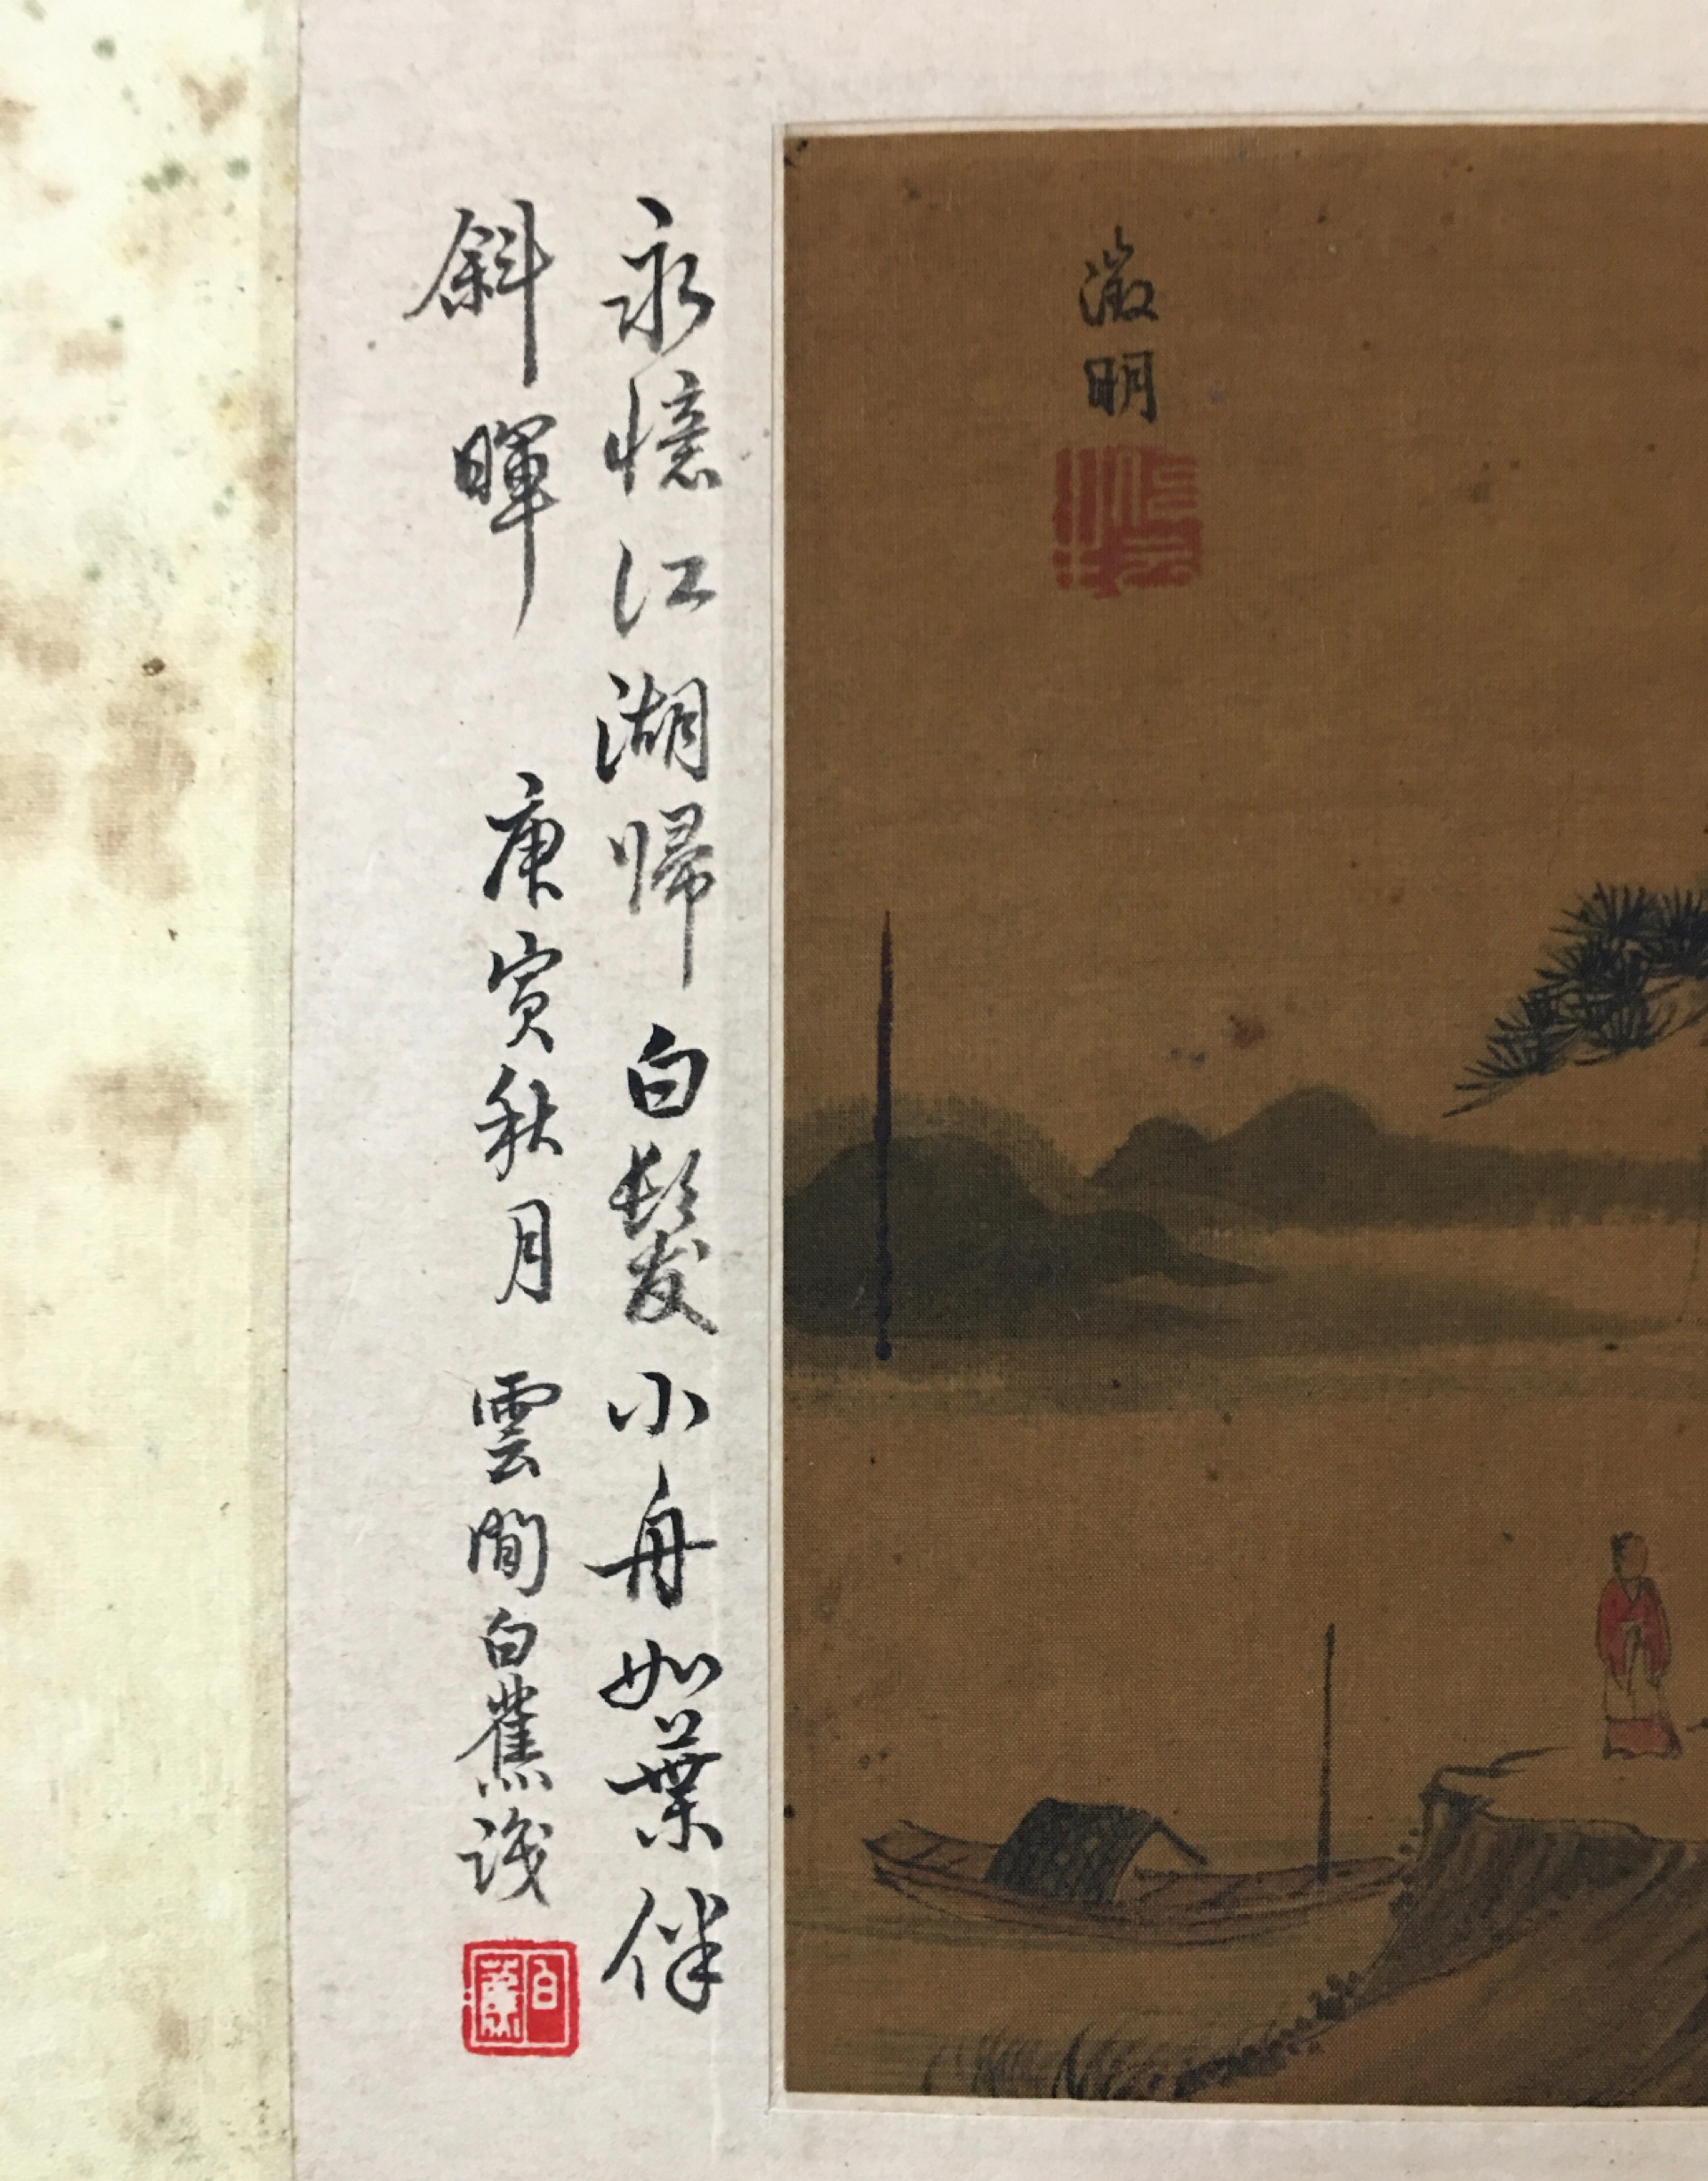 澂明
永憶江湖帰白髮小舟如葉伴
斜暉 庚寅秋月 雲間白蕉識
白蕉